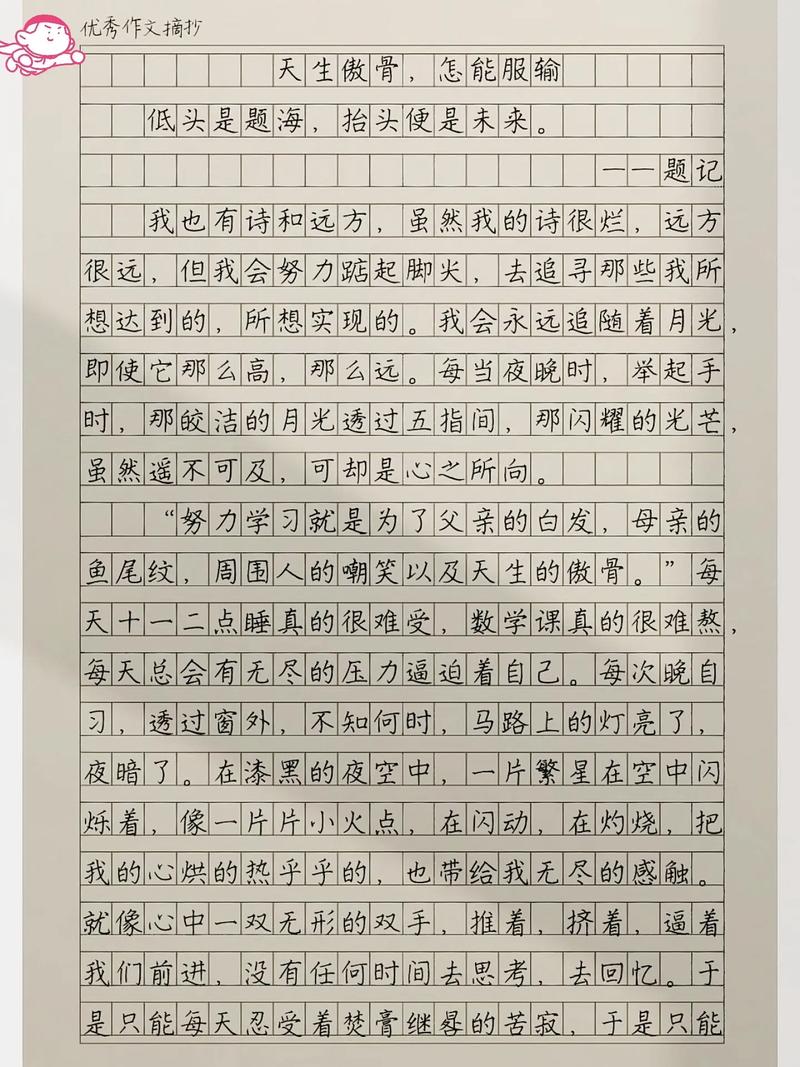 优秀作文摘抄
天生傲骨，怎能服输
低头是题海，抬头便是未来。
——题记
我也有诗和远方，虽然我的诗很烂，远方
很远，但我会努力踮起脚尖，去追寻那些我所
想达到的，所想实现的。我会永远追随着月光，
即使它那么高，那么远。每当夜晚时，举起手
时，那皎洁的月光透过五指间，那闪耀的光芒，
虽然遥不可及，可却是心之所向。
“努力学习就是为了父亲的白发，母亲的
鱼尾纹，周围人的嘲笑以及天生的傲骨。”每
天十一二点睡真的很难受，数学课真的很难熬，
每天总会有无尽的压力逼迫着自己。每次晚自
习，透过窗外，不知何时，马路上的灯亮了，
夜暗了。在漆黑的夜空中，一片繁星在空中闪
烁着，像一片片小火点，在闪动，在灼烧，把
我的心烘的热乎乎的，也带给我无尽的感触。
就像心中一双无形的双手，推着，挤着，逼着
我们前进，没有任何时间去思考，去回忆。于
是只能每天忍受着焚膏继晷的苦寂，于是只能